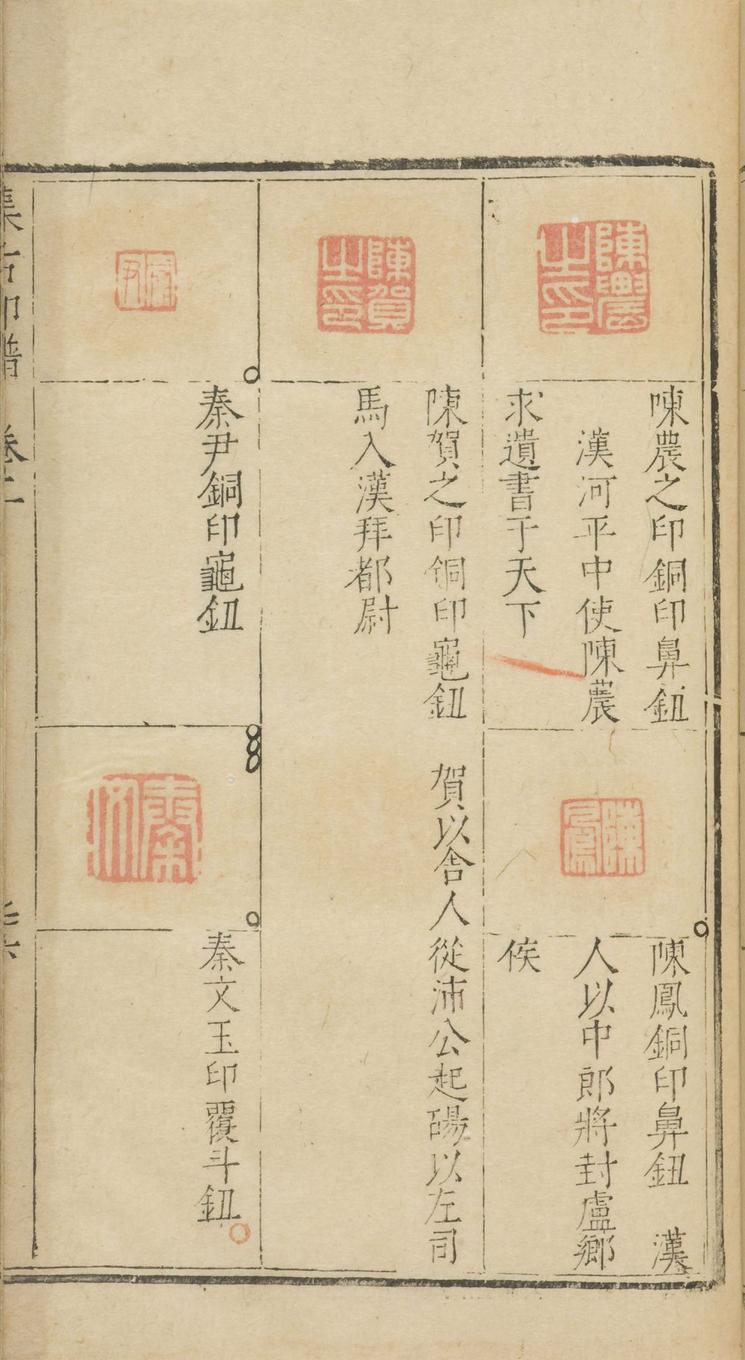 陳農之印
陳農之印銅印鼻鈕
漢河平中使陳農
求遺書于天下
陳鳳
陳鳳銅印鼻鈕　漢
人以中郎將封盧鄉
侯
陳賀之印
陳賀之印銅印龜鈕　賀以舍人從沛公起碭以左司
馬入漢拜都尉
秦尹
秦尹銅印龜鈕
秦文
秦文玉印覆斗鈕
集古印譜　卷二